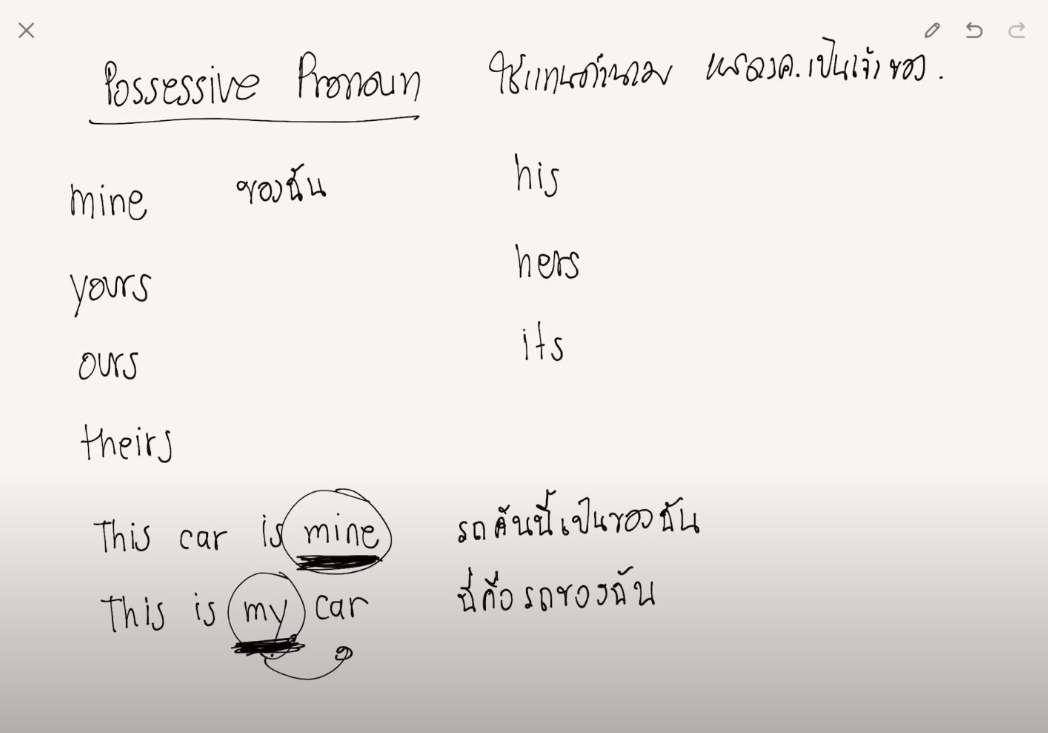 Possessive Pronoun ใช้แทนคำนาม แสดงค.เป็นเจ้าของ.
mine ของฉัน his
yours hers
ours its
theirs
This car is mine รถคันนี้เป็นของฉัน
This is my car นี่คือรถของฉัน